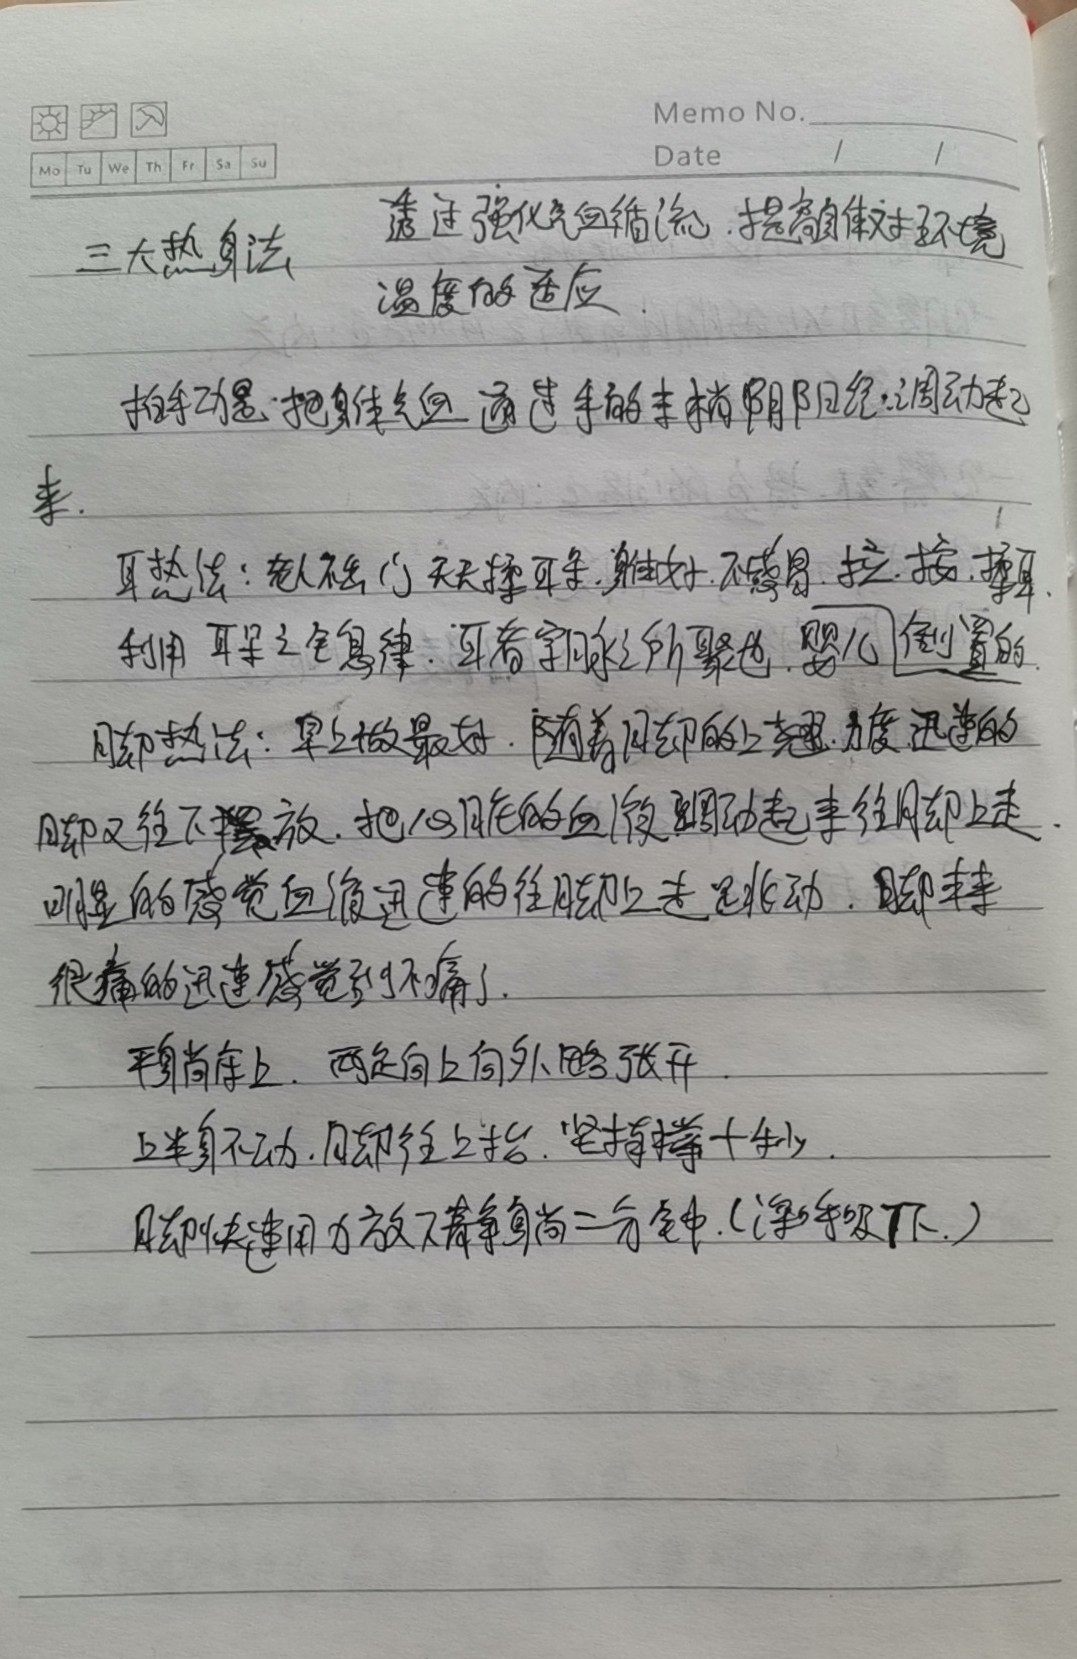 Memo No.
Date / /
Mo Tu We Th Fr Sa Su
三大热身法
透过强化气血循流.提高身体对环境
温度的适应.
拍手功是.把身体气血通过手的末梢阴阳经.调动起
来.
耳热法:老人不出门天天揉耳朵.身体好.不感冒.拉.按.揉耳.
利用耳朵之全息律.耳者宗脉之所聚也.婴儿倒置的.
脚热法:早上做最好.随着脚的上翘.力度迅速的
脚又往下摆放.把心脏的血液调动起来往脚上走.
明显的感觉血液迅速的往脚上走 跳动.脚本来
很痛的迅速感觉到不痛了.
平躺床上.两足向上向外略张开.
上半身不动.脚往上抬.坚持撑十秒.
脚快速用力放下静躺二分钟.(深呼吸下.)